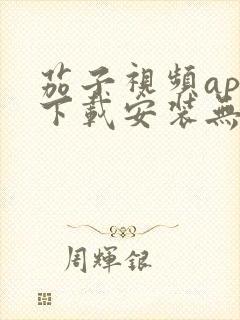 茄子視頻ap
下載安裝無
周輝銀